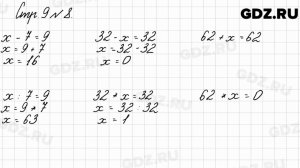 GDZ.RU
Стр 9 № 8
x - 7 = 9
x = 9 + 7
x = 16
32 - x = 32
x = 32 - 32
x = 0
62 + x = 62
x : 7 = 9
x = 9 * 7
x = 63
32 * x = 32
x = 32 : 32
x = 1
62 * x = 0